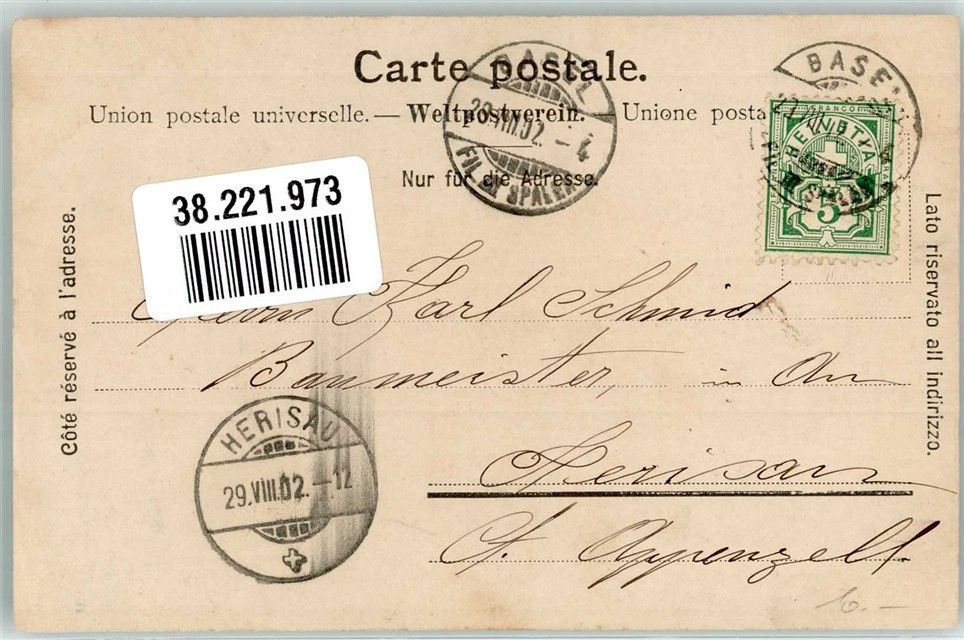 Carte postale.
Union postale universelle. — Weltpostverein. — Unione posta
Nur für die Adresse.
BASEL
29.VIII.02. - 4
FIL. SPALEN
BASEL
FRANCO
HELVETIA
5
38.221.973
Côté réservé à l'adresse.
Lato riservato all indirizzo.
Herrn Karl Schmid
Baumeister, in Au
Herisau
Ct. Appenzell.
HERISAU
29.VIII.02. - 12
6.-